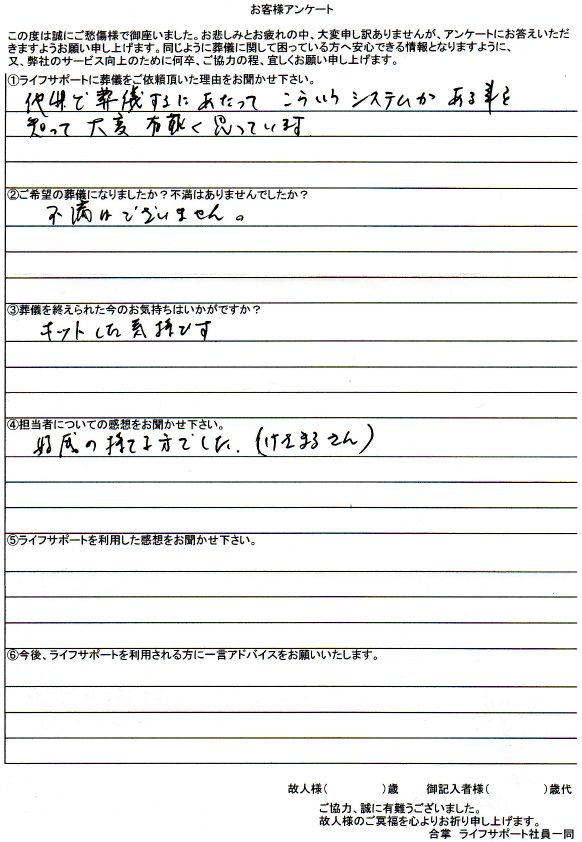 お客様アンケート
この度は誠にご愁傷様で御座いました。お悲しみとお疲れの中、大変申し訳ありませんが、アンケートにお答えいただ
きますようお願い申し上げます。同じように葬儀に関して困っている方へ安心できる情報となりますように、
又、弊社のサービス向上のために何卒、ご協力の程、宜しくお願い申し上げます。
①ライフサポートに葬儀をご依頼頂いた理由をお聞かせ下さい。
で葬儀するにあたって こういう システムが ある事を
知って 大変 有難く思っています
②ご希望の葬儀になりましたか？不満はありませんでしたか？
不満はございません。
③葬儀を終えられた今のお気持ちはいかがですか？
ホットした気持です
④担当者についての感想をお聞かせ下さい。
好感の持てる方でした。(さん)
⑤ライフサポートを利用した感想をお聞かせ下さい。
⑥今後、ライフサポートを利用される方に一言アドバイスをお願いいたします。
故人様( )歳 御記入者様( )歳代
ご協力、誠に有難うございました。
故人様のご冥福を心よりお祈り申し上げます。
合掌 ライフサポート社員一同